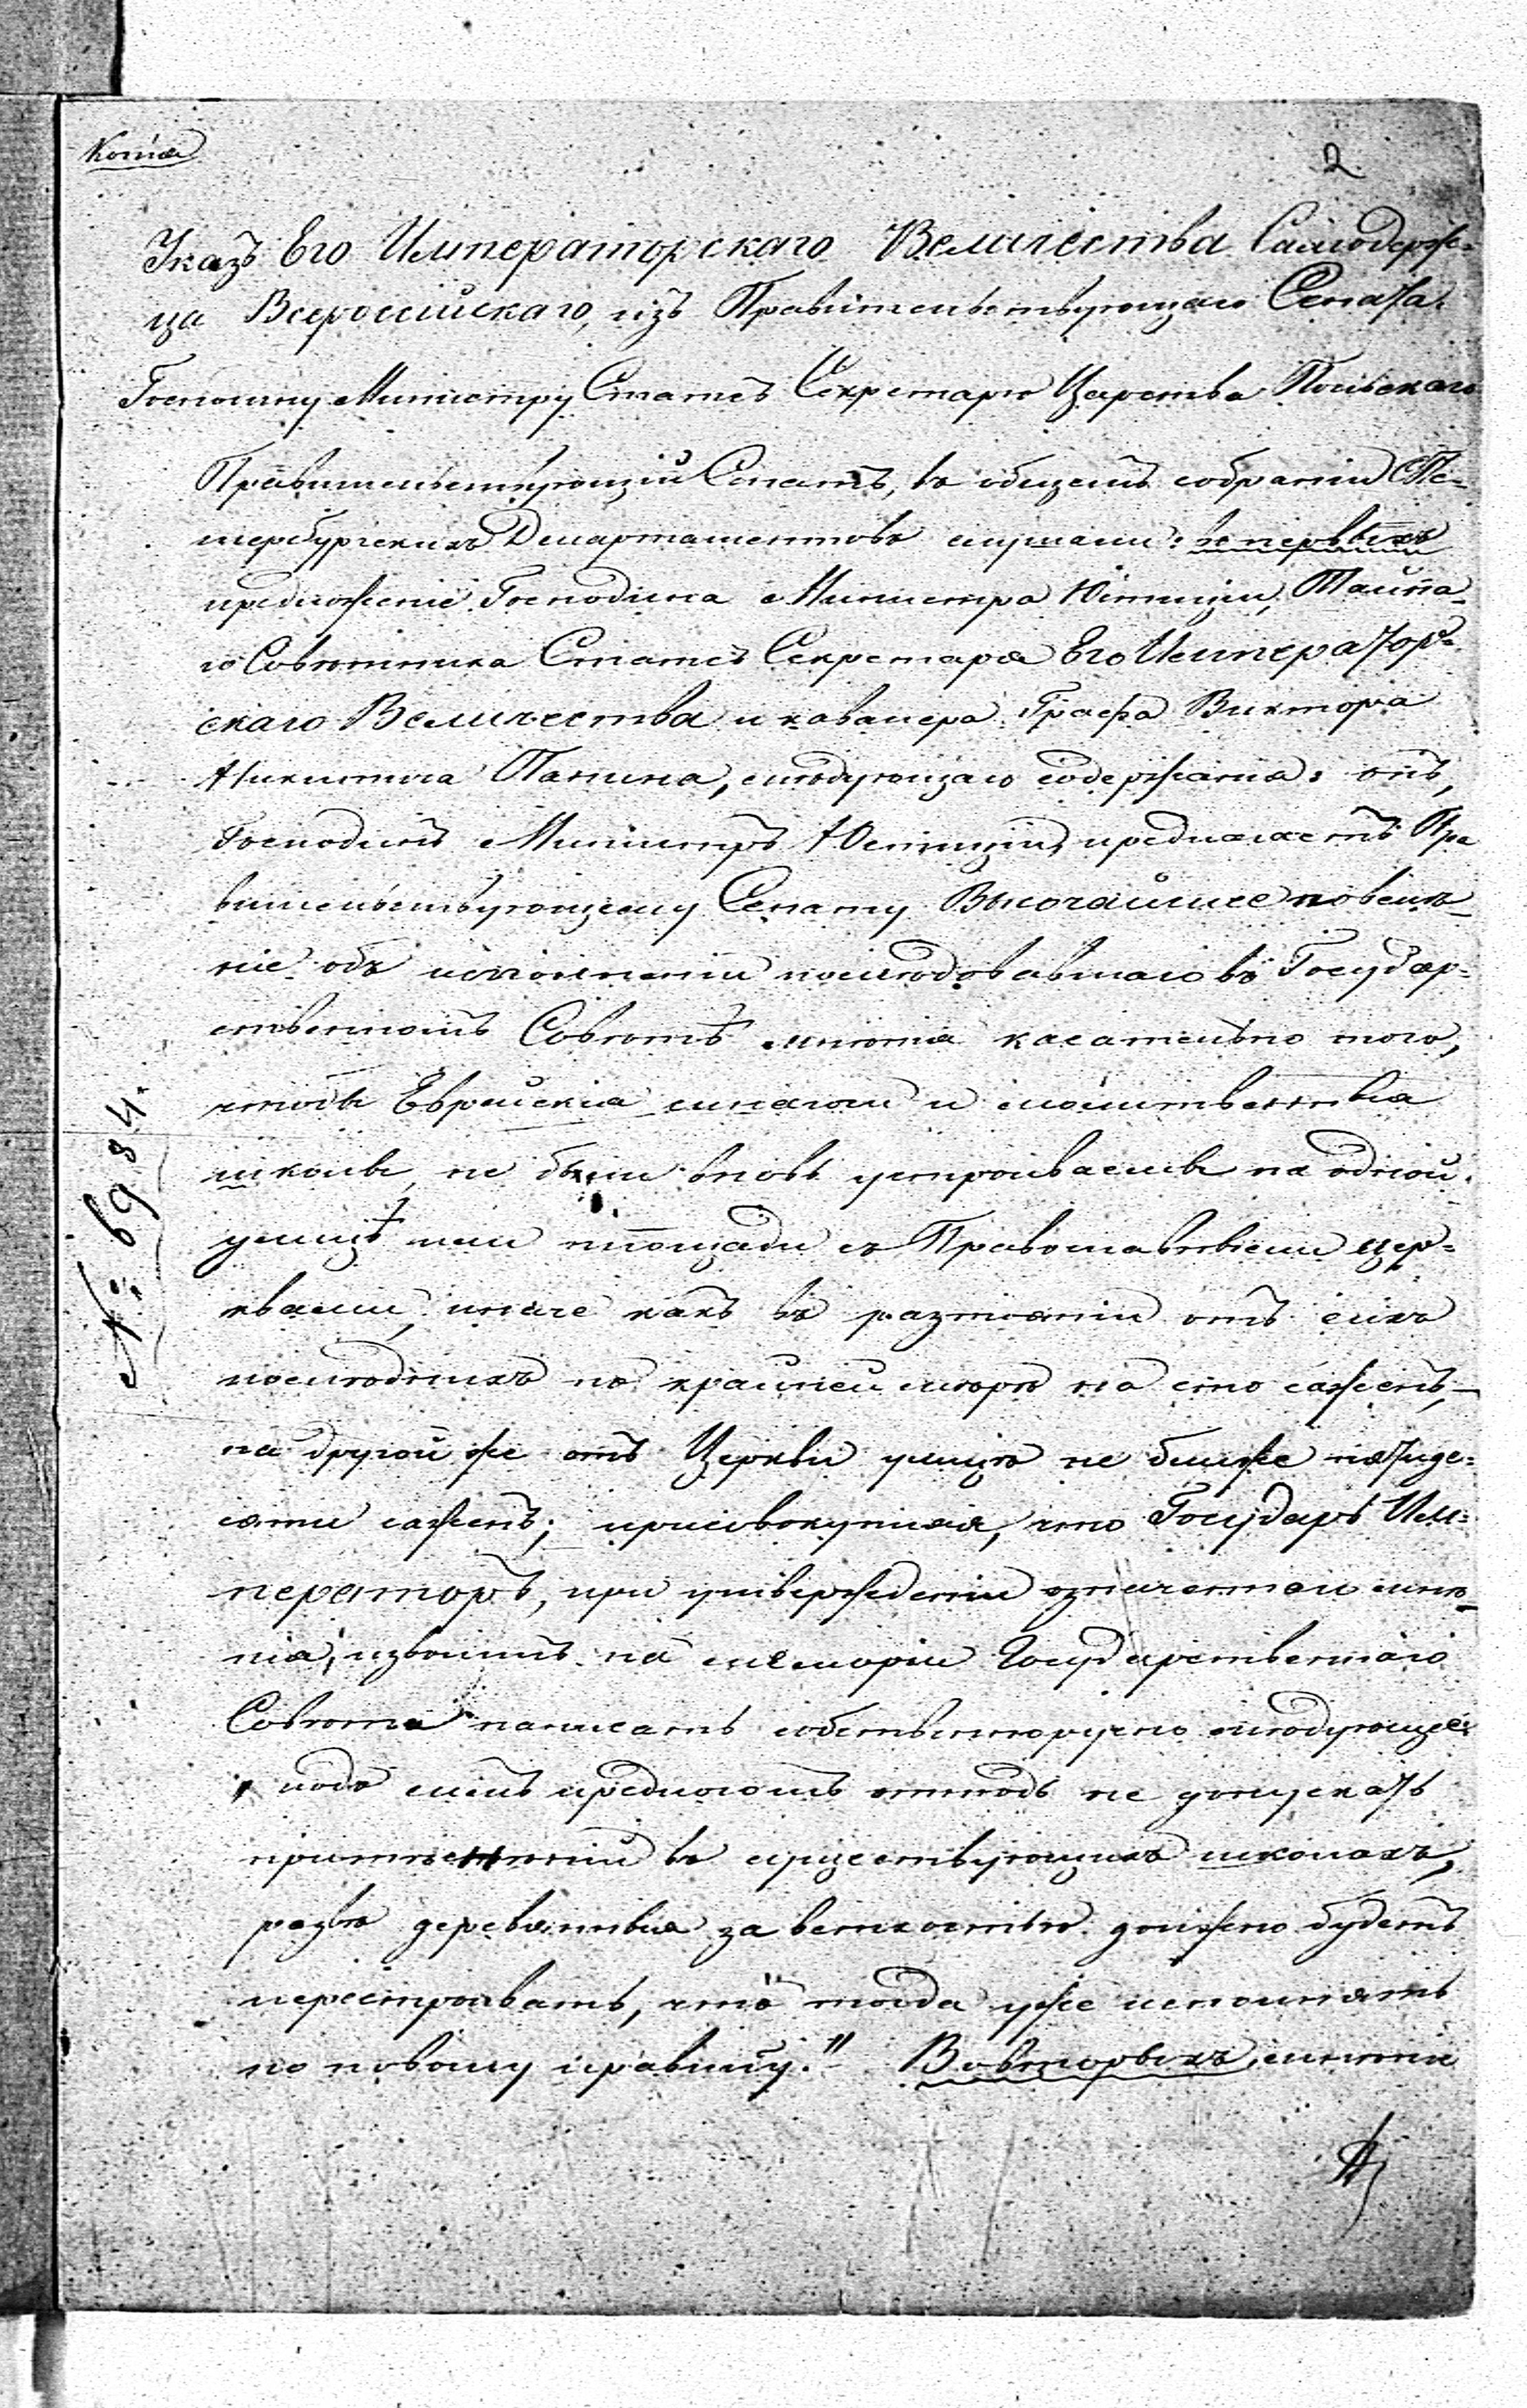 Копія
2
Указъ Его Императорскаго Величества Самодерж-
ца Всероссійскаго, изъ Правительствующаго Сената.
Господину Министру Статсъ Секретарю Царства Польскаго
Правительствующій Сенатъ, въ общемъ собраніи СПе-
тербургскихъ Департаментовъ слушали: въ первыхъ
предложеніе Господина Министра Юстиціи, Тайна-
го Совѣтника Статсъ Секретаря Его Император-
скаго Величества и кавалера Графа Виктора
Никитича Панина, слѣдующаго содержанія: онъ,
Господинъ Министръ Юстиціи, предлагаетъ Пра
вительствующему Сенату Высочайшее повелѣ-
ніе объ исполненіи послѣдовавшаго въ Государ-
ственномъ Совѣтѣ мнѣнія касательно того,
чтобы Еврейскія синагоги и молитвенныя
школы не были вновь устроиваемы на одной
улицѣ или площади съ Православными цер-
квами, иначе какъ въ разстояніи отъ сихъ
послѣднихъ по крайней мѣрѣ на сто саженъ,-
на другой же отъ Церкви улицѣ не ближе пятиде-
сяти саженъ; присовокупляя, что Государь Им-
ператоръ, при утвержденіи означеннаго мнѣ-
нія, изволилъ на меморіи Государственнаго
Совѣта написать собственноручно слѣдующее:
„подъ симъ предлогомъ отнюдь не допускать
притѣсненій въ существующихъ школахъ,
развѣ деревянныя за ветхостію должно будетъ
перестроивать, что тогда уже исполнять
по новому правилу." Вовторыхъ, мнѣнія
№ 6984.